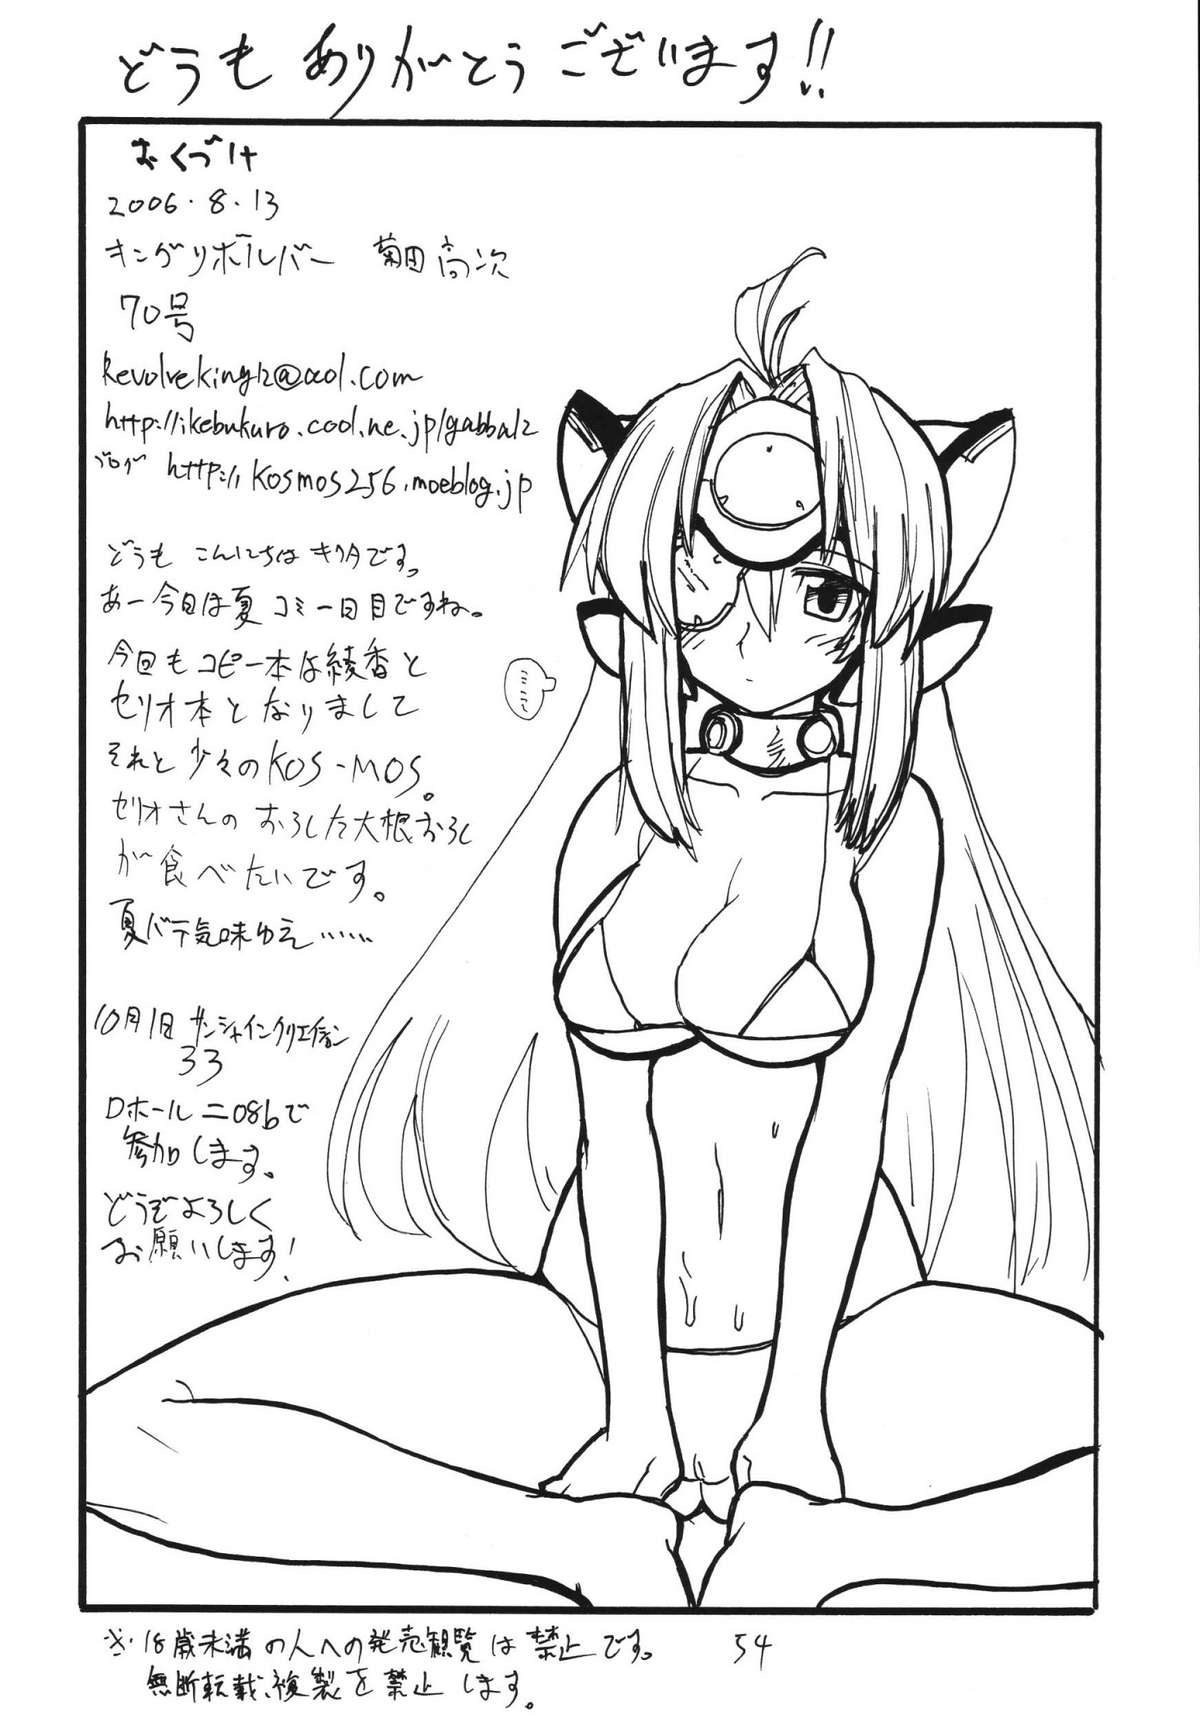 どうも ありがとう ございます!!
おくづけ
2006.8.13
キングリボルバー 菊田高次
70号
Revolveking12@aol.com
http://ikebukuro.cool.ne.jp/gabba12
ブログ http://kosmos256.moeblog.jp
どうも こんにちは キクタです。
あー今日は夏コミ一日目ですね。
今回もコピー本は綾香と
セリオ本となりまして
それと少々のKOS-MOS。
セリオさんの おろした大根おろし
が食べたいです。
夏バテ気味ゆえ……
10月1日 サンシャインクリエイション
33
Dホール ニ08bで
参加します。
どうぞよろしく
お願いします!
※・18歳未満の人への発売観覧は禁止です。
無断転載、複製を禁止します。
54